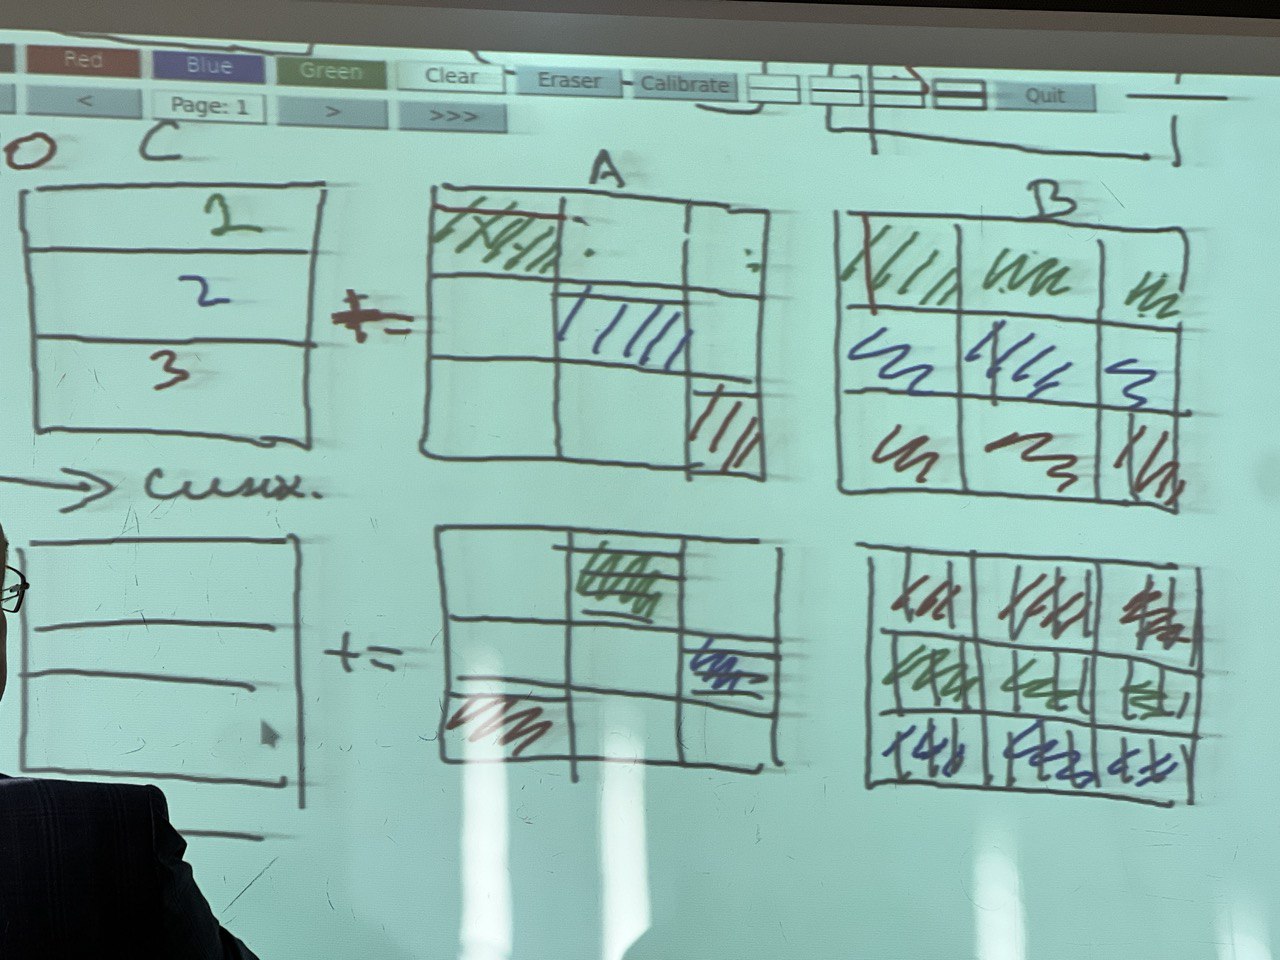 Red Blue Green Clear Eraser Calibrate Quit
< Page: 1 > >>>
0 C
A
B
1
2
3
+=
→ синх.
+=